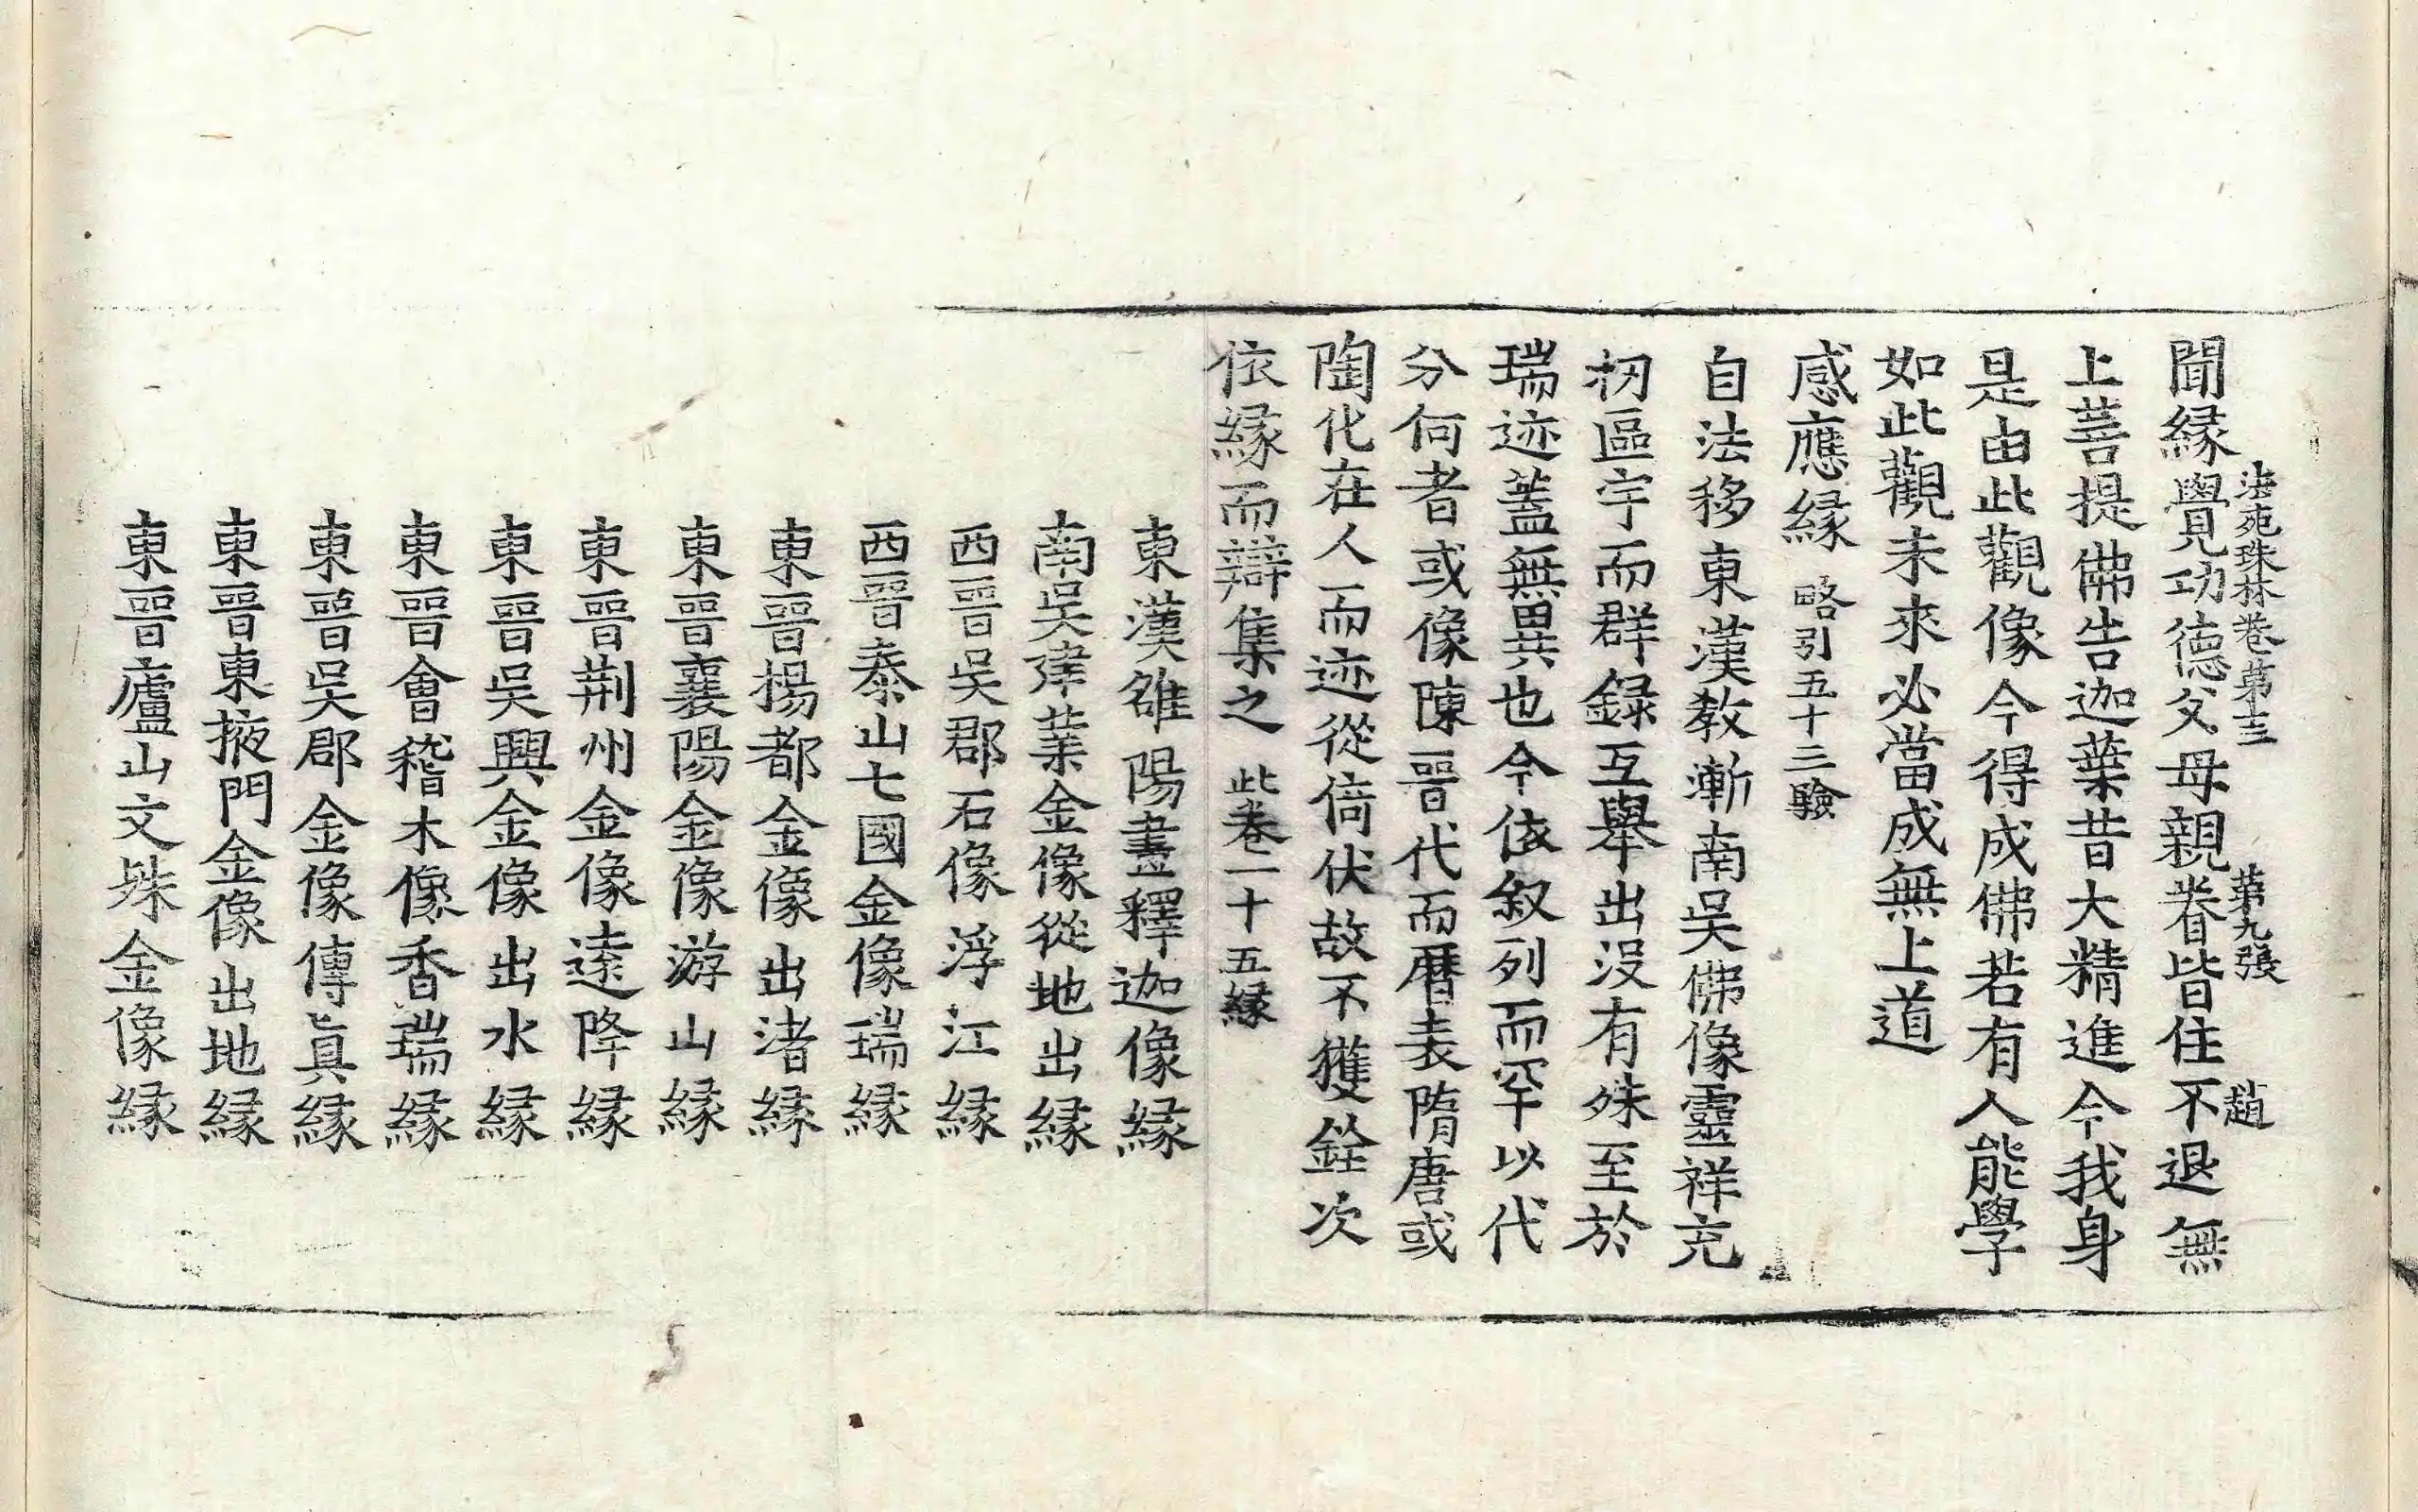 法苑珠林卷第十三 第九張 趙
聞緣覺功德父母親眷皆住不退無
上菩提佛告迦葉昔大精進今我身
是由此觀像今得成佛若有人能學
如此觀未來必當成無上道
感應緣 略引五十三驗
自法移東漢教漸南吳佛像靈祥充
牣區宇而群録互舉出沒有殊至於
瑞迹蓋無異也今依叙列而罕以代
分何者或像陳晉代而曆表隋唐或
陶化在人而迹從倚伏故不獲銓次
依緣而辯集之 此卷二十五緣
東漢雒陽畫釋迦像緣
南吳建業金像從地出緣
西晉吳郡石像浮江緣
西晉泰山七國金像瑞緣
東晉揚都金像出渚緣
東晉襄陽金像游山緣
東晉荆州金像遠降緣
東晉吳興金像出水緣
東晉會稽木像香瑞緣
東晉吳郡金像傳真緣
東晉東掖門金像出地緣
東晉廬山文殊金像緣